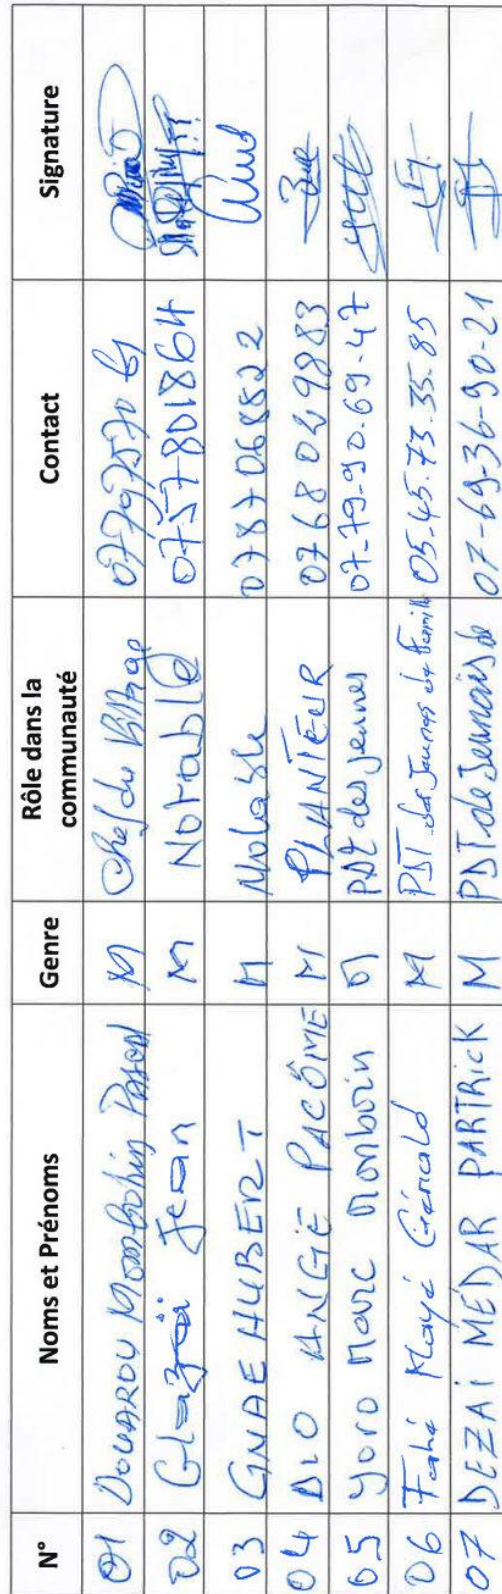 N° Noms et Prénoms Genre Rôle dans la communauté Contact Signature
01 DOUAROU Pascal M Chef du Village
02 Jean M Notable 0757801864
03 GNAE HUBERT M Notable 0787068822
04 DLO ANGE PACÔME M PLANTEUR 0768029883
05 Yoro Marc Monboin M PDT des jeunes 07-79-90-69-47
06 Gérald M PDT des Jeunes et Famille 05.45.73.35.85
07 DEZAI MÉDAR PARTRICK M PDT de 07-69-36-90-21